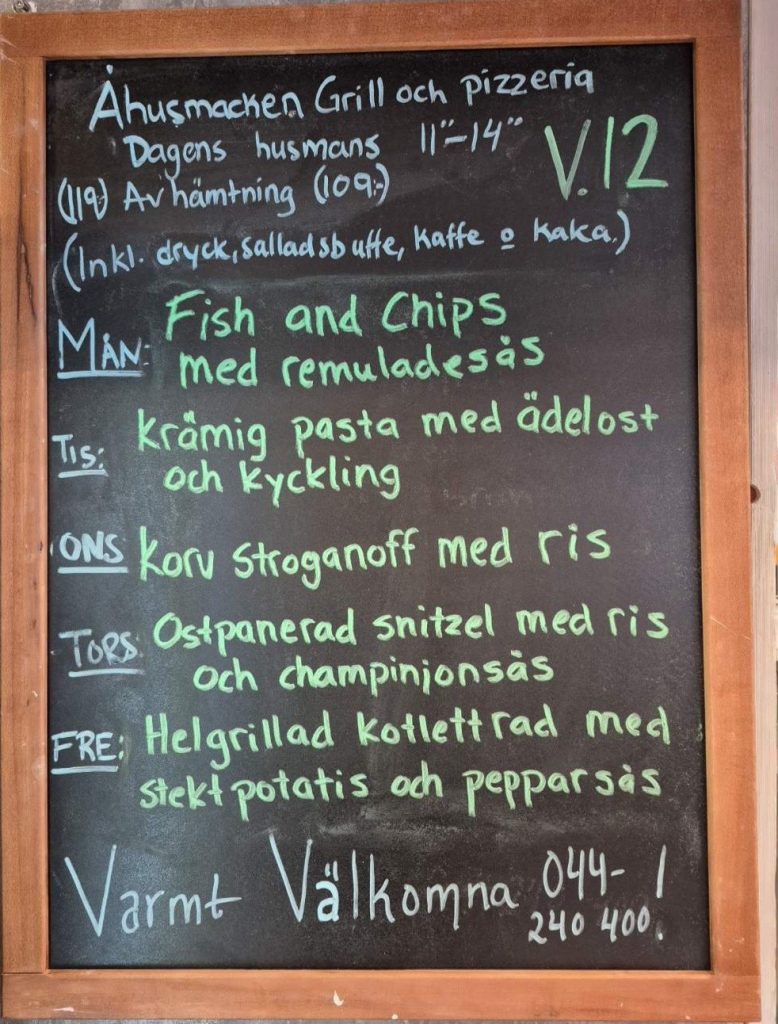 Åhusmacken Grill och pizzeria
Dagens husmans 11"-14" V.12
(119) Avhämtning (109:-)
(Inkl. dryck, salladsbuffe, kaffe o kaka.)
MÅN: Fish and Chips
med remuladesås
TIS: Krämig pasta med ädelost
och kyckling
ONS Korv Stroganoff med ris
TORS Ostpanerad snitzel med ris
och champinjonsås
FRE: Helgrillad kotlettrad med
stekt potatis och pepparsås
Varmt Välkomna 044- !
240 400